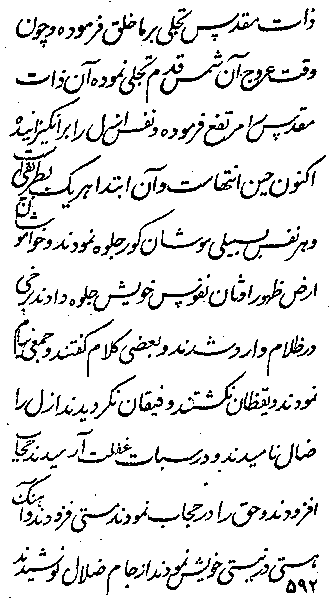 ذات مقدس تجلی بر ما خلق فرموده و چون
وقت عروج آن شمس قدم تجلی نموده آن ذات
مقدس را مرتفع فرموده و نفس ازل را برانگیزانیده
اکنون حین انتهاست و آن ابتدا هر یک بطریقی
و هر نفس بسبیلی موشان کور جلوه نمودند و خواموشان
ارض ظهور اوثان نفوس خویش جلوه دادند برخی
در ظلام وارد شدند و بعضی کلام گفتند و جمعی
نمودند و یقظان نگشتند و فیقان نگردیدند ازل را
ضال نامیدند و در سبات غفلت آرمیدند حجاب
افزودند و حق را در حجاب نمودند مستی فزودند و آهنگ
هستی در نیستی خویش نمودند از جام ضلال نوشیدند
۵۹۲